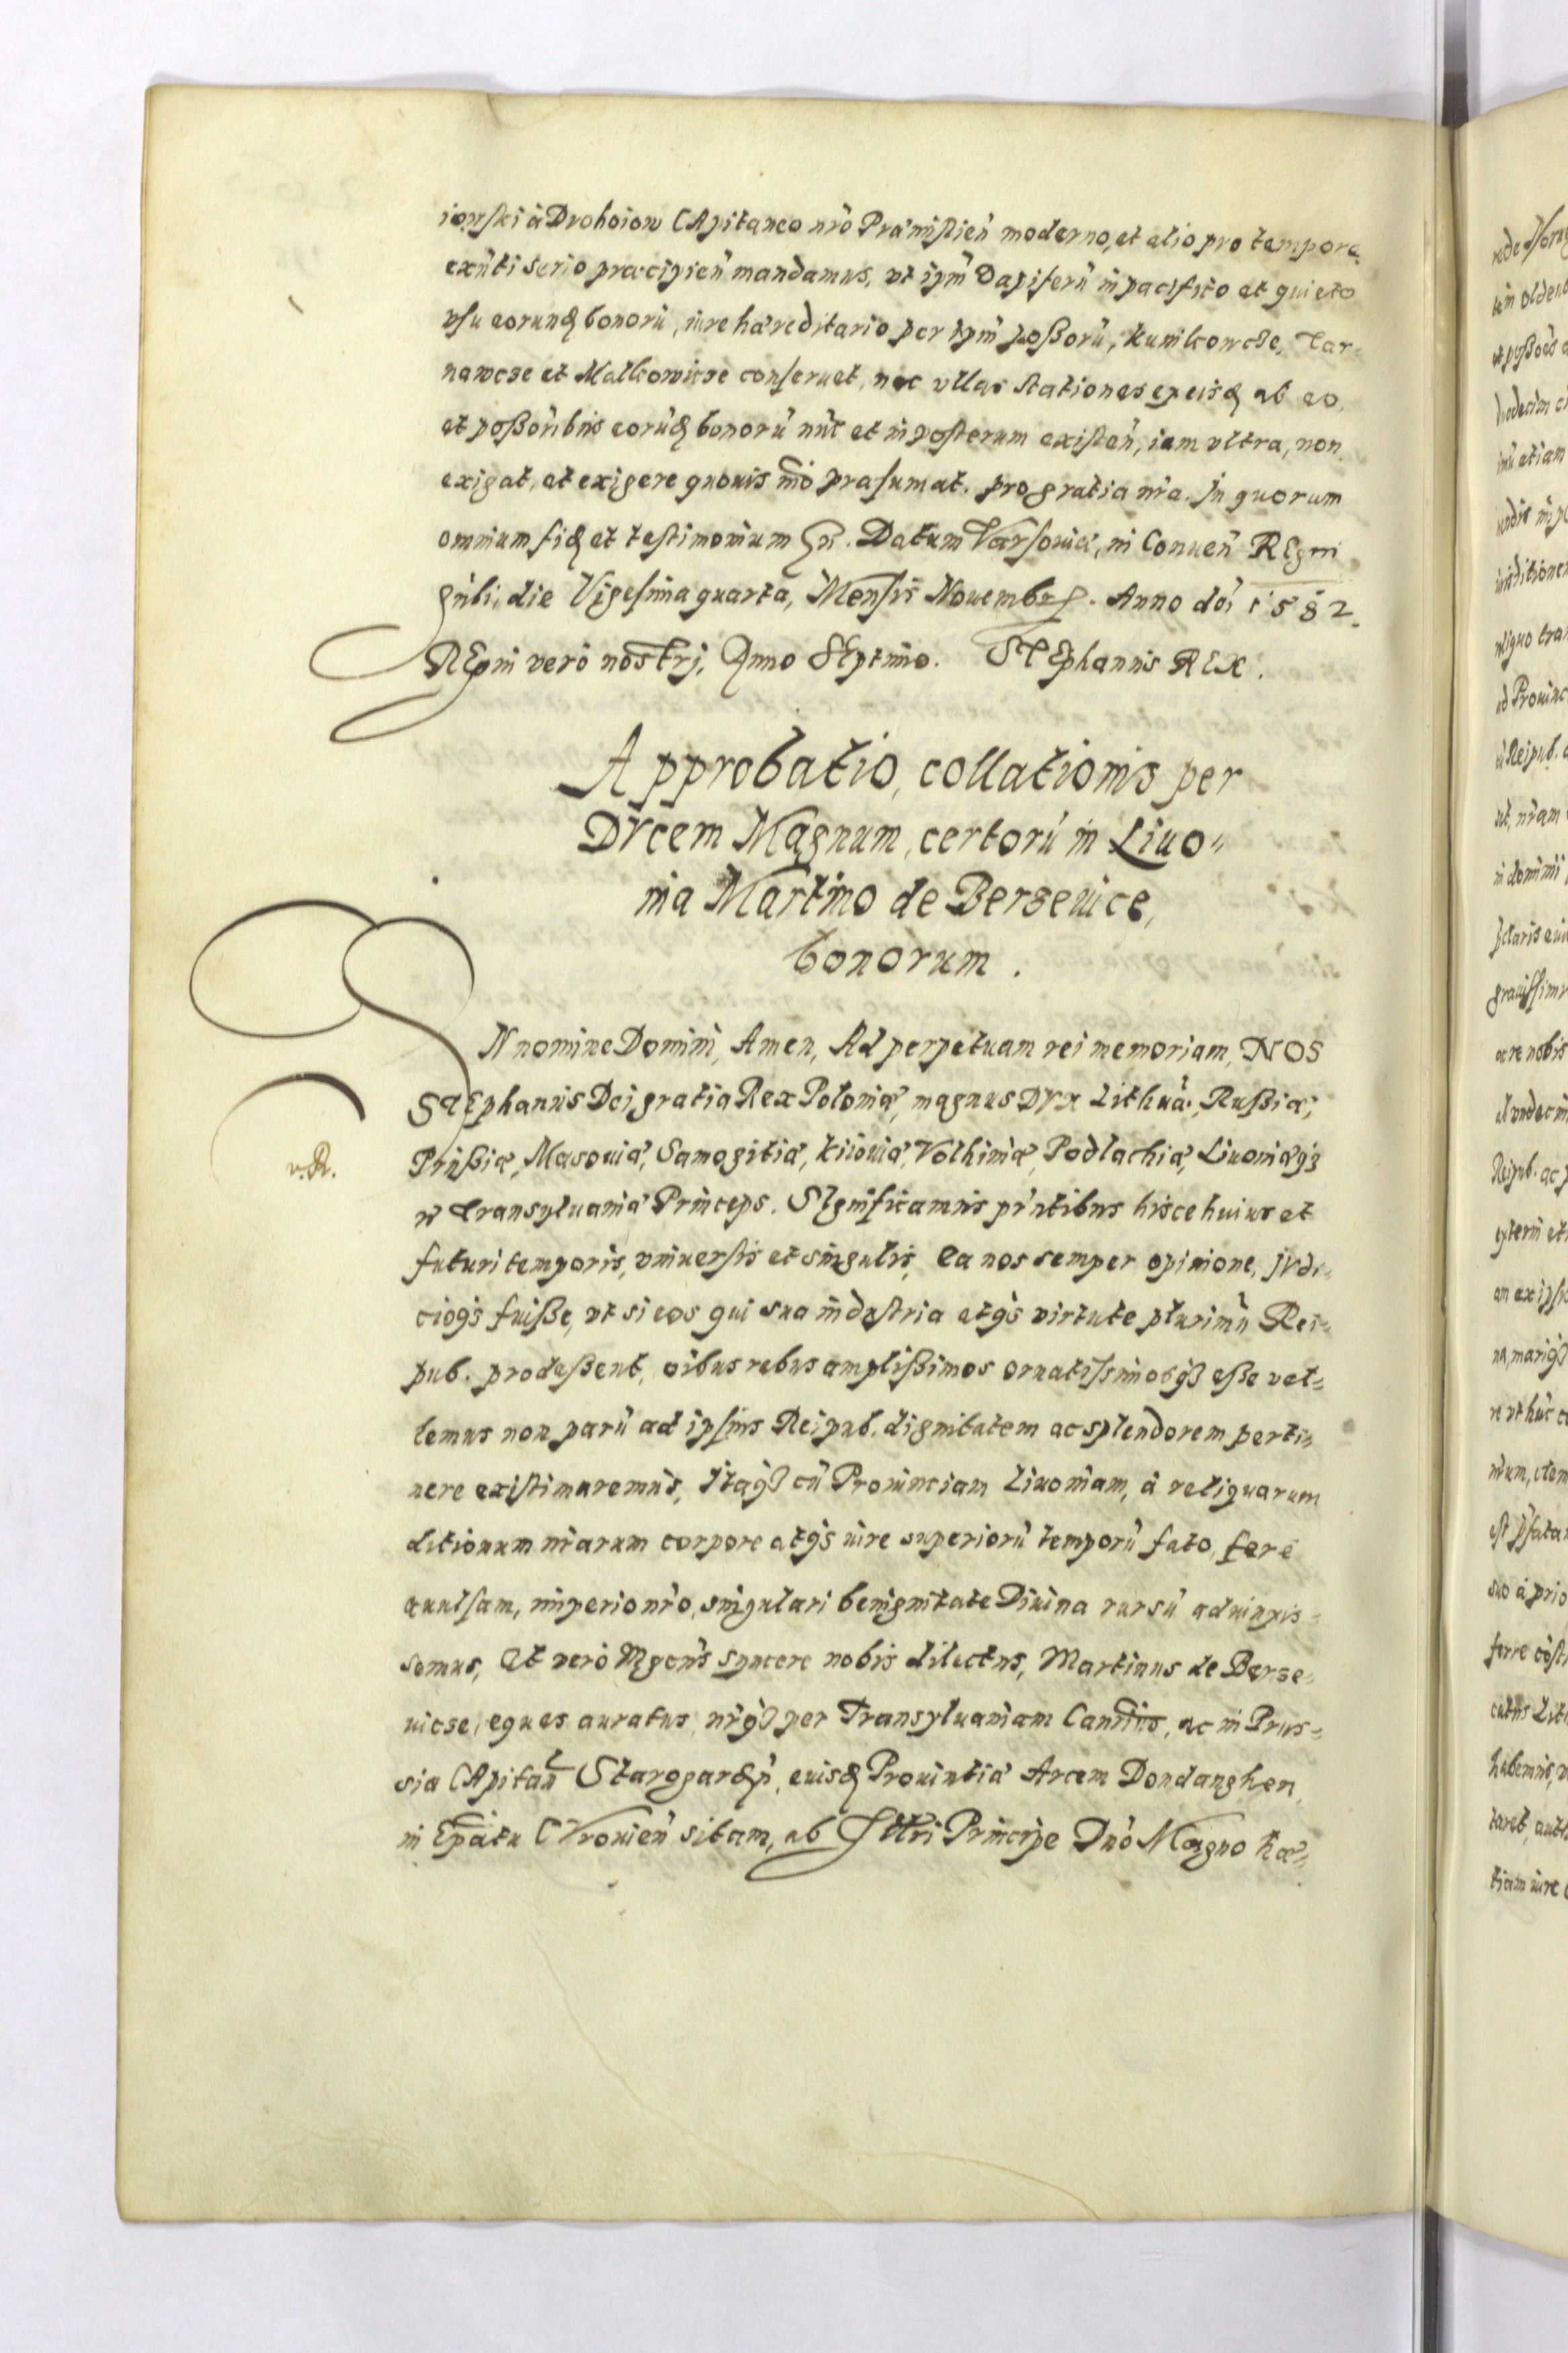 iowski à Drohoiow CApitaneo nr̃o Præmislieñ moderno, et alio pro tempore
exñti serio præcipieñ mandamus, vt ipm̃ Dapiferũ in pacifico et quieto
vsu eorundẽ bonorũ, iure hæreditario per ipm̃ possorũ, Kunkowcze, Tar-
nawcze et Malkowicze conseruet, nec vllas stationes ex eisdẽ ab eo,
et possoribus eorũdẽ bonorũ nũc et in posterum existeñ, iam vltra, non
exigat, et exigere quouis mõ præsumat. pro gratia nr̃a. In quorum
omnium fidẽ et testimonium Datum Varsouiæ, in Conueñ REgni
gñli, die Vigesima quarta, Mensis Nouembr. Anno dõi 1582.
REgni verò nostrj, Anno SEptimo. STEphanus REX.
Approbatio, collationis per
DVcem Magnum, certorũ in Liuo-
nia Martino de Berzeuice,
bonorum.
IN nomine Domini, Amen, Ad perpetuam rei memoriam, NOS
STEphanus Dei gratia Rex Poloniæ, magnus DVX Lithuã. Russiæ,
Prussiæ, Masouiæ, Samogitiæ, Kiiouiæ, Volhiniæ, Podlachiæ, Liuoniæq3
v.R.
Transyluaniæ Princeps. SIgnificamus pr̃ntibus hisce huius et
futuri temporis, vniuersis et singulis, Ea nos semper opinione, jVdi-
cioq3 fuisse, vt si eos qui sua industria atq3 virtute plurimũ Rei-
pub. prodessent, oĩbus rebus amplissimos ornatissimosq3 esse vel-
lemus non parũ ad ipsius Reipub. dignitatem ac splendorem perti-
nere existimaremus, Itaq3 cũ Prouinciam Liuoniam, à reliquarum
ditionum nr̃arum corpore atq3 iure superiorũ temporũ fato, ferè
auulsam, imperio nr̃o, singulari benignitate Diuina rursũ adiunxis-
semus, Et verò Mgcus syncere nobis dilectus, Martinus de Berze-
uicze, eques auratus, nr̃q3 per Transyluaniam Canrius, ac in Prus-
sia CApitañ Starogardeñ, eiusdẽ Prouintiæ Arcem Dondanghen,
in Epãtu CVronieñ sitam, ab Illri Principe Dño Magno hæ-